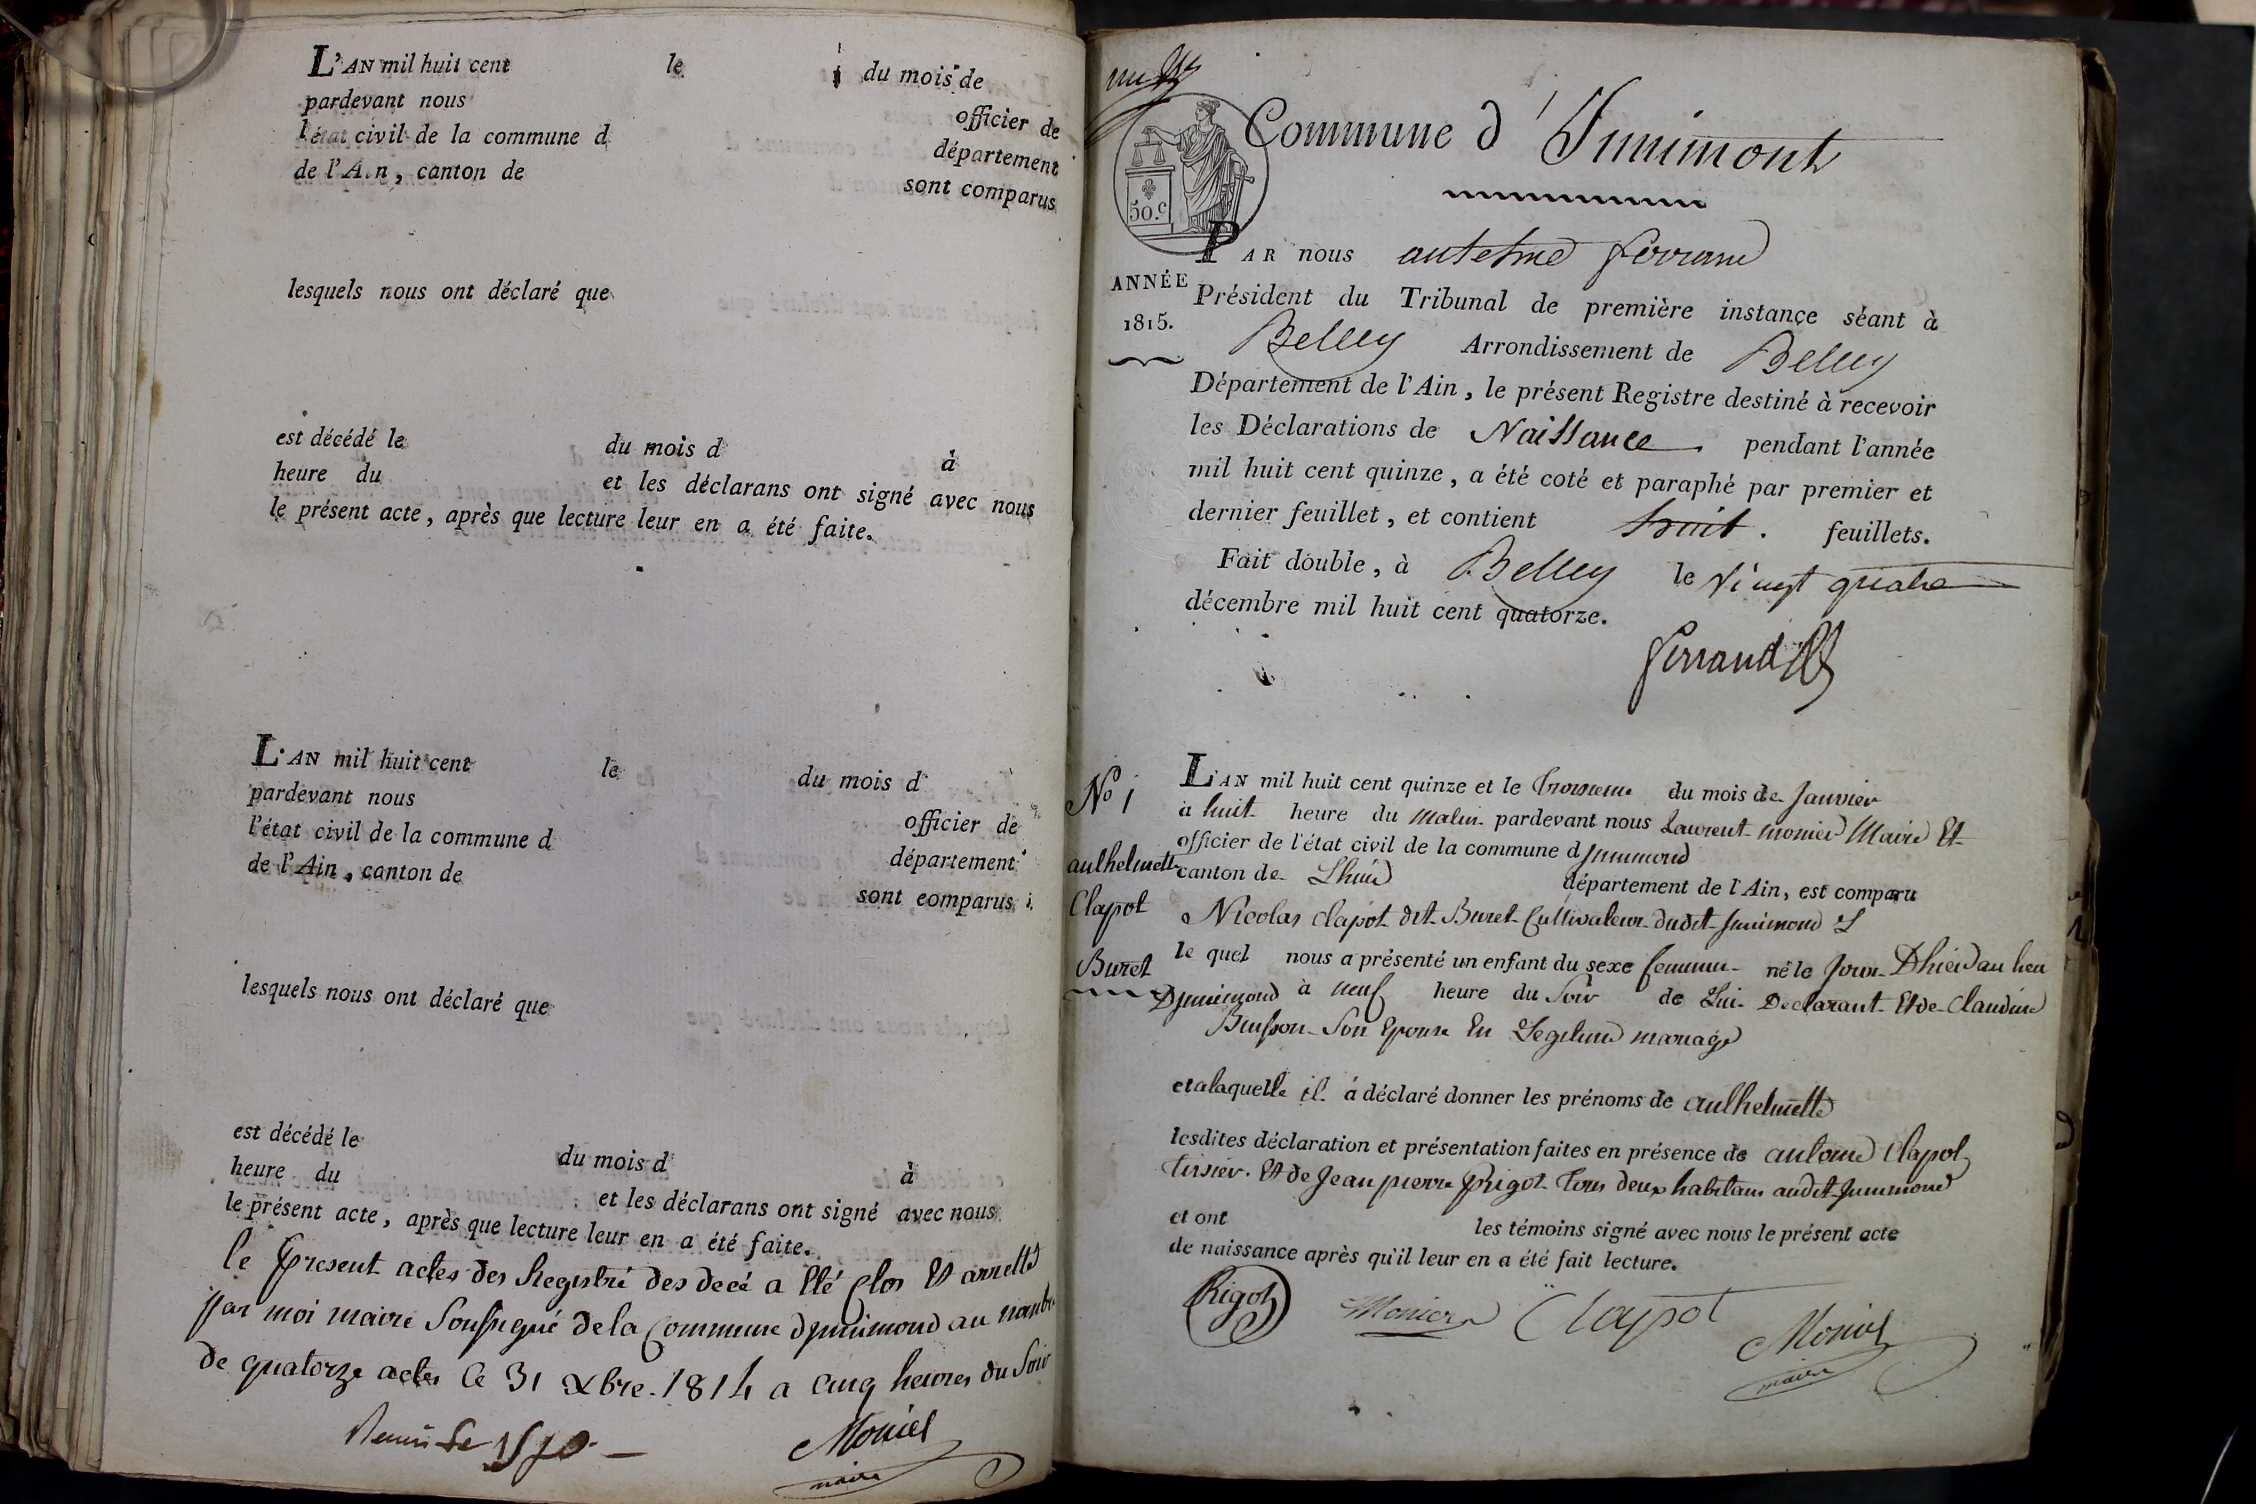 L'AN mil huit cent le du mois de
pardevant nous officier de
l'état civil de la commune d département
de l'Ain, canton de sont comparus
lesquels nous ont déclaré que
est décédé le du mois d à
heure du et les déclarans ont signé avec nous
le présent acte, après que lecture leur en a été faite.
L'AN mil huit cent le du mois d
pardevant nous officier de
l'état civil de la commune d département
de l'Ain, canton de sont comparus
lesquels nous ont déclaré que
est décédé le du mois d à
heure du et les déclarans ont signé avec nous
le présent acte, après que lecture leur en a été faite.
le present actes des Registre des decé a Eté Clos Et arrette
par moi maire Soussigné de la Commune dJnnimond au nombre
de quatorze actes le 31 xbre 1814 a cinq heures du Soir
Moniet
maire
Commune d'Innimont
50.c
ANNÉE
1815.
PAR nous antelme ferrand
Président du Tribunal de première instance séant à
Belley Arrondissement de Belley
Département de l'Ain, le présent Registre destiné à recevoir
les Déclarations de Naissance pendant l'année
mil huit cent quinze, a été coté et paraphé par premier et
dernier feuillet, et contient huit feuillets.
Fait double, à Belley le vingt quatre
décembre mil huit cent quatorze.
ferrand
No 1
aulhelmette
Clapot
Buret
L'AN mil huit cent quinze et le troisieme du mois de Janvier
à huit heure du matin pardevant nous Laurent monier Maire Et
officier de l'état civil de la commune d Jnnimond
canton de Lhuis département de l'Ain, est comparu
Nicolas clapot dit Buret Cultivateur dudit Jnnimond
le quel nous a présenté un enfant du sexe feminin né le Jour Dhier au lieu
DJnnimond à neuf heure du Soir de Lui Declarant Et de Claudine
Buisson Son Epouse En Legitime mariage
et a laquelle il à déclaré donner les prénoms de aulhelmette
lesdites déclaration et présentation faites en présence de antoine Clapot
tissier Et de Jean pierre Rigot tous deux habitans audit Jnnimond
et ont les témoins signé avec nous le présent acte
de naissance après qu'il leur en a été fait lecture.
Rigot Monier Clapot Moniet
maire